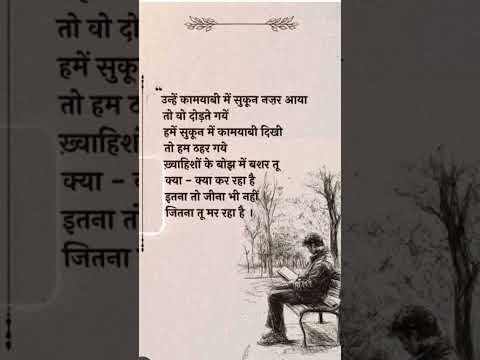 ❝
उन्हें कामयाबी में सुकून नज़र आया
तो वो दोड़ते गयें
हमें सुकून में कामयाबी दिखी
तो हम ठहर गये
ख़्वाहिशों के बोझ में बशर तू
क्या – क्या कर रहा है
इतना तो जीना भी नहीं
जितना तू मर रहा है ।